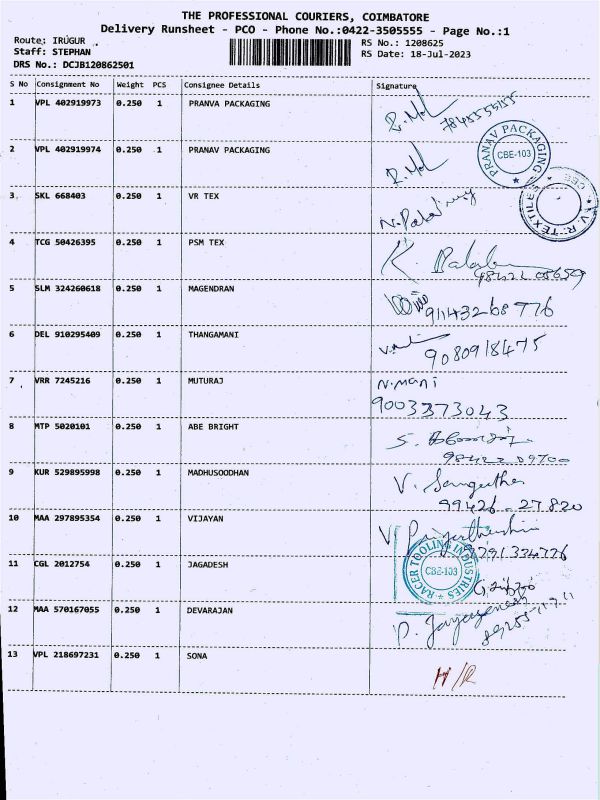 THE PROFESSIONAL COURIERS, COIMBATORE
Delivery Runsheet - PCO - Phone No.:0422-3505555 - Page No.:1
Route: IRUGUR
RS No.: 1208625
Staff: STEPHAN
RS Date: 18-Jul-2023
DRS No.: DCJB120862501
S No Consignment No Weight PCS Consignee Details Signature
1 VPL 402919973 0.250 1 PRANVA PACKAGING
2 VPL 402919974 0.250 1 PRANAV PACKAGING
PRANAV PACKAGING CBE-103
3 SKL 668403 0.250 1 VR TEX
V. R. TEXTILES CBE
4 TCG 50426395 0.250 1 PSM TEX K.
5 SLM 324260618 0.250 1 MAGENDRAN 91143268776
6 DEL 910295409 0.250 1 THANGAMANI 9080918475
7 VRR 7245216 0.250 1 MUTURAJ N.mani
9003373043
8 MTP 5020101 0.250 1 ABE BRIGHT S.
98422 09700
9 KUR 529895998 0.250 1 MADHUSOODHAN V. Sangeetha
99426-27820
10 MAA 297895354 0.250 1 VIJAYAN V
11 CGL 2012754 0.250 1 JAGADESH
RACER TOOLING INDUSTRIES CBE-103
12 MAA 570167055 0.250 1 DEVARAJAN
13 VPL 218697231 0.250 1 SONA H/R